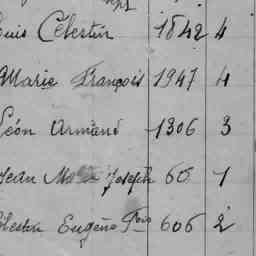 ouis Célestin 1842 4
Marie François 1947 4
Léon Armand 1306 3
Jean Joseph 60 1
élestin Eugène Fois 606 2